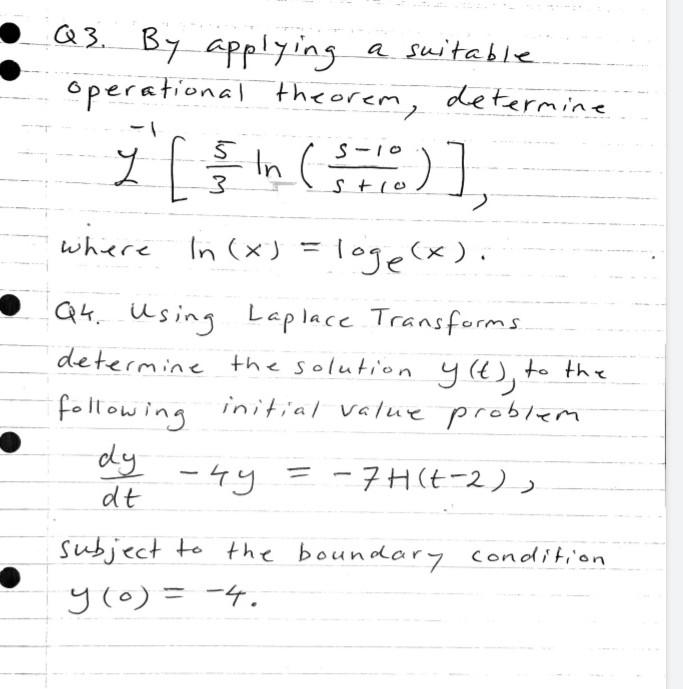 Q3. By applying a suitable
operational theorem, determine
ℒ⁻¹ [ 5/3 ln ( (s-10)/(s+10) ) ],
where ln(x) = logₑ(x).
Q4. Using Laplace Transforms
determine the solution y(t), to the
following initial value problem
dy/dt - 4y = -7H(t-2),
subject to the boundary condition
y(0) = -4.